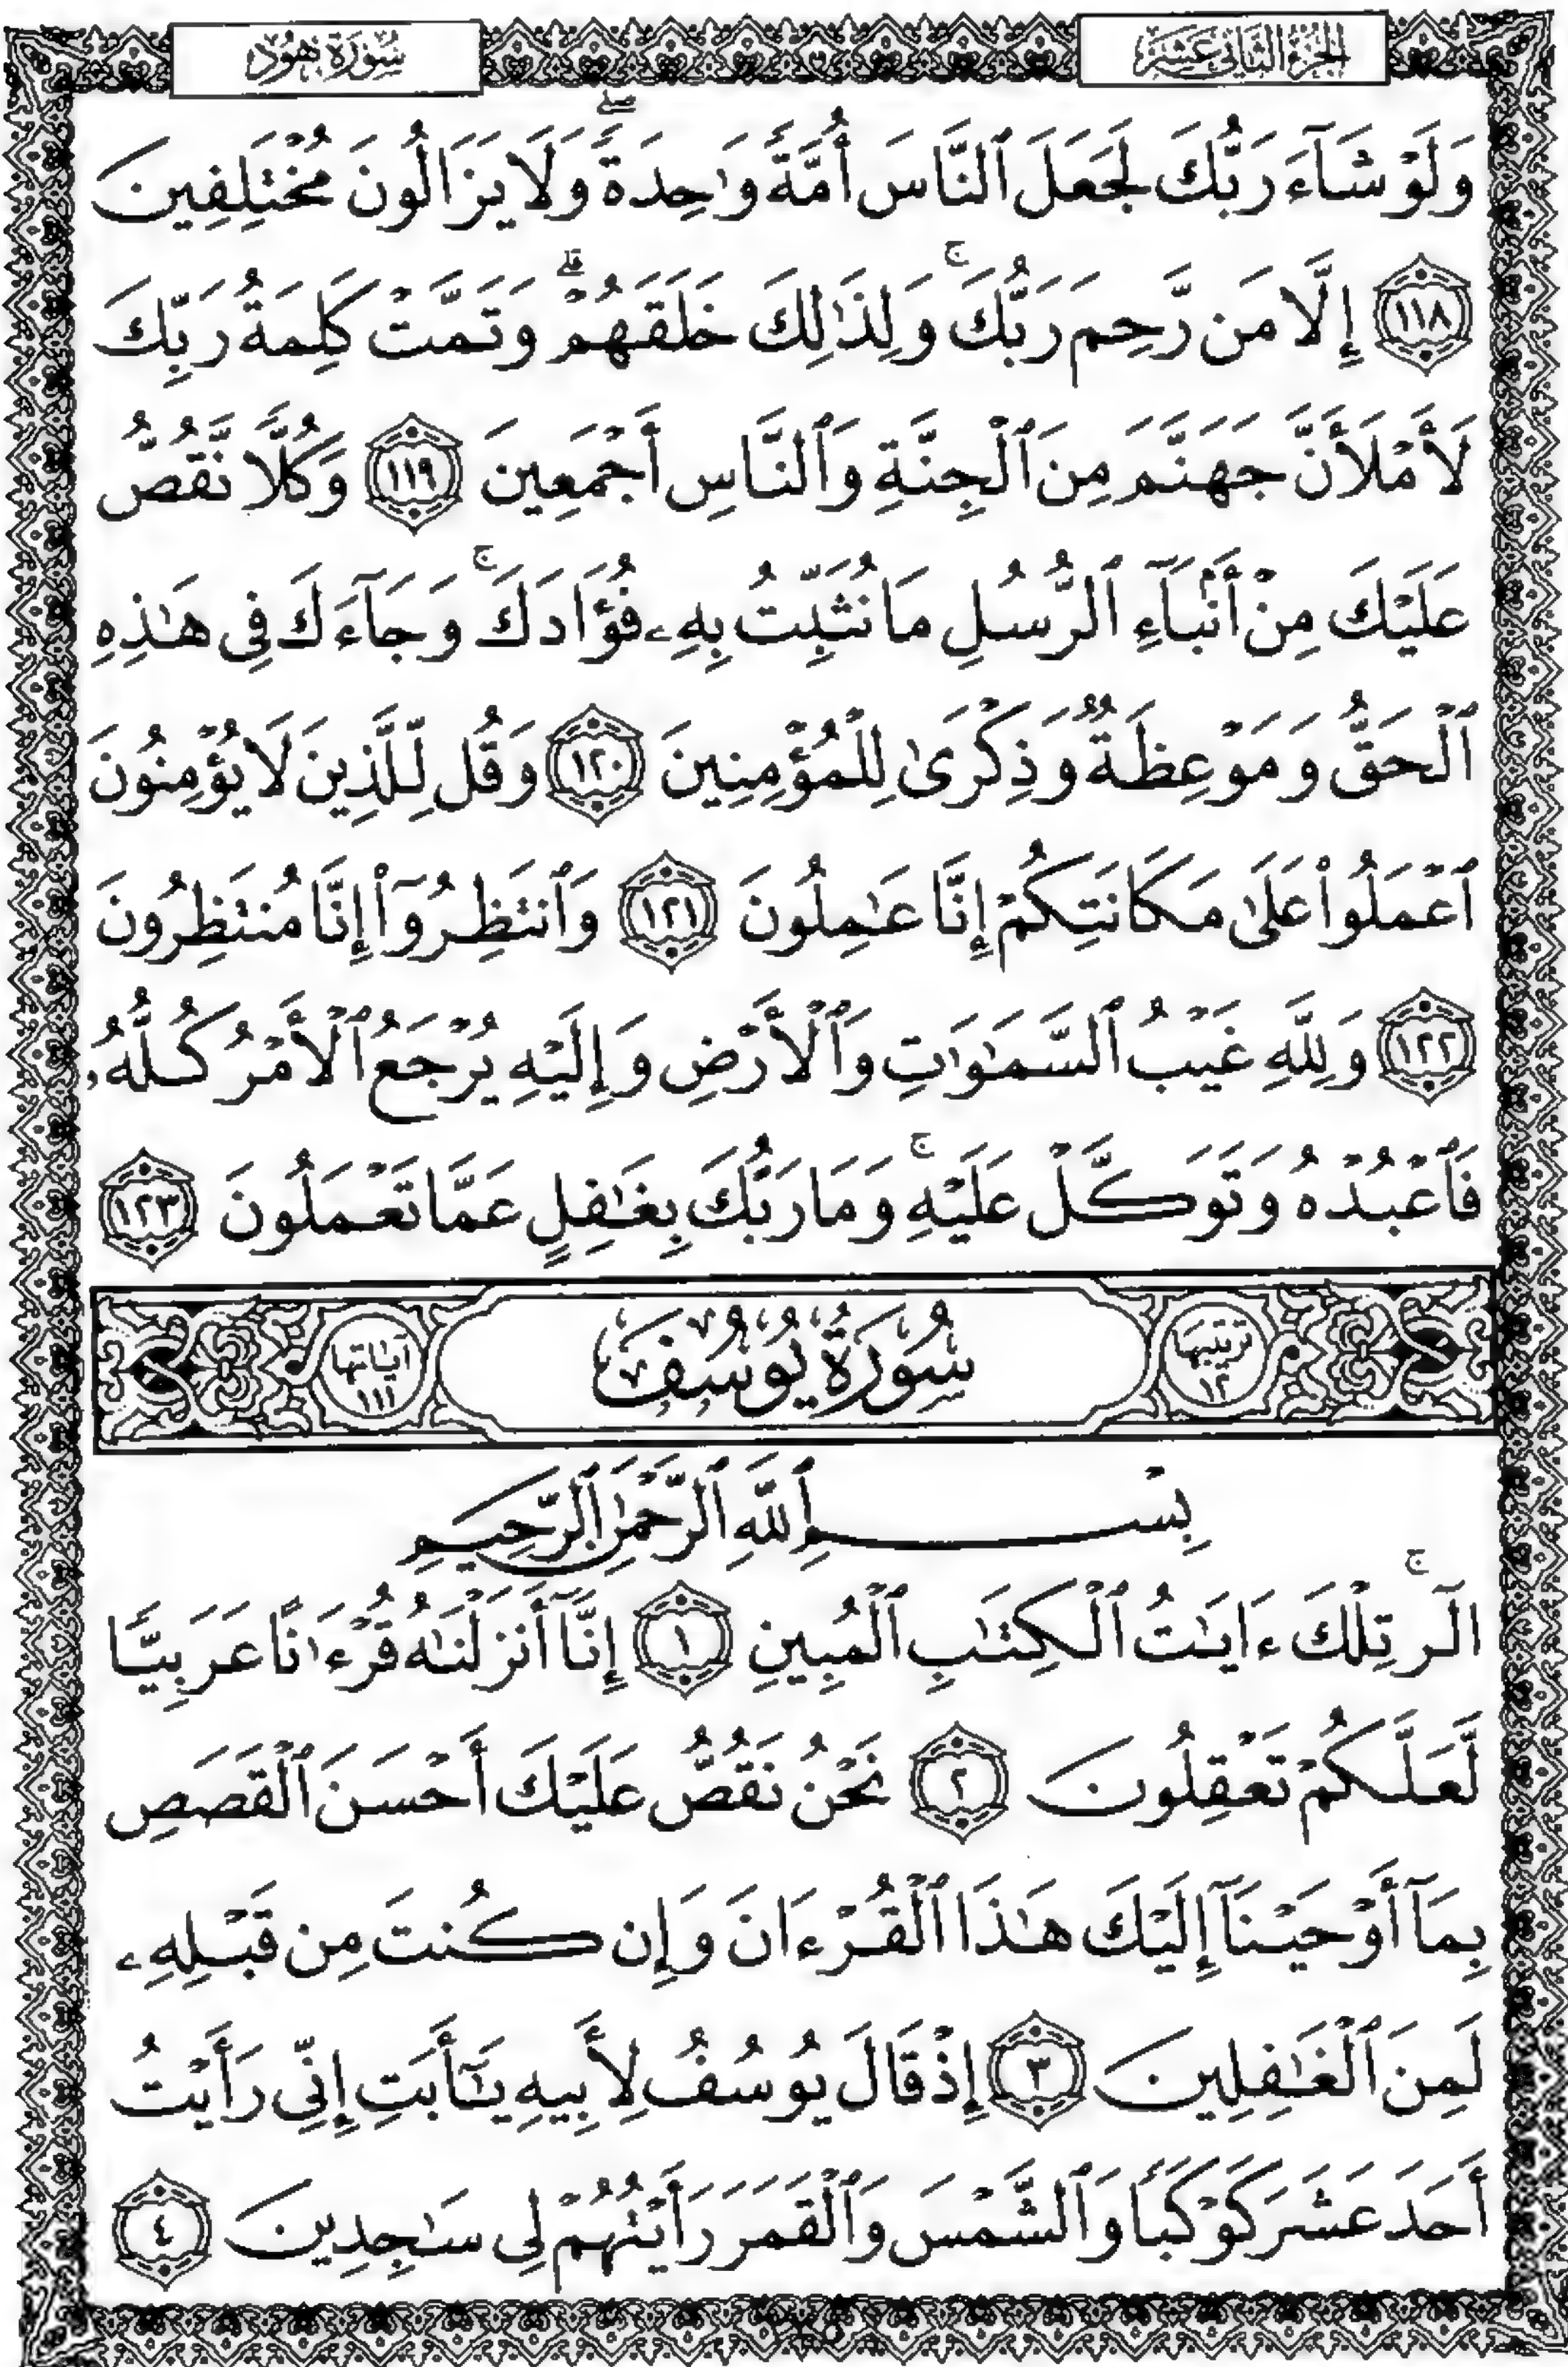 الجزء الثاني عشر
سُورَةُ هُودٍ
وَلَوْ شَآءَ رَبُّكَ لَجَعَلَ ٱلنَّاسَ أُمَّةً وَٰحِدَةً ۖ وَلَا يَزَالُونَ مُخْتَلِفِينَ
١١٨ إِلَّا مَن رَّحِمَ رَبُّكَ ۚ وَلِذَٰلِكَ خَلَقَهُمْ ۗ وَتَمَّتْ كَلِمَةُ رَبِّكَ
لَأَمْلَأَنَّ جَهَنَّمَ مِنَ ٱلْجِنَّةِ وَٱلنَّاسِ أَجْمَعِينَ ١١٩ وَكُلًّا نَّقُصُّ
عَلَيْكَ مِنْ أَنۢبَآءِ ٱلرُّسُلِ مَا نُثَبِّتُ بِهِۦ فُؤَادَكَ ۚ وَجَآءَكَ فِى هَٰذِهِ
ٱلْحَقُّ وَمَوْعِظَةٌ وَذِكْرَىٰ لِلْمُؤْمِنِينَ ١٢٠ وَقُل لِّلَّذِينَ لَا يُؤْمِنُونَ
ٱعْمَلُوا۟ عَلَىٰ مَكَانَتِكُمْ إِنَّا عَٰمِلُونَ ١٢١ وَٱنتَظِرُوٓا۟ إِنَّا مُنتَظِرُونَ
١٢٢ وَلِلَّهِ غَيْبُ ٱلسَّمَٰوَٰتِ وَٱلْأَرْضِ وَإِلَيْهِ يُرْجَعُ ٱلْأَمْرُ كُلُّهُۥ
فَٱعْبُدْهُ وَتَوَكَّلْ عَلَيْهِ ۚ وَمَا رَبُّكَ بِغَٰفِلٍ عَمَّا تَعْمَلُونَ ١٢٣
ترتيبها ١٢ سُورَةُ يُوسُفَ آياتها ١١١
بِسْمِ ٱللَّهِ ٱلرَّحْمَٰنِ ٱلرَّحِيمِ
الٓر ۚ تِلْكَ ءَايَٰتُ ٱلْكِتَٰبِ ٱلْمُبِينِ ١ إِنَّآ أَنزَلْنَٰهُ قُرْءَٰنًا عَرَبِيًّا
لَّعَلَّكُمْ تَعْقِلُونَ ٢ نَحْنُ نَقُصُّ عَلَيْكَ أَحْسَنَ ٱلْقَصَصِ
بِمَآ أَوْحَيْنَآ إِلَيْكَ هَٰذَا ٱلْقُرْءَانَ وَإِن كُنتَ مِن قَبْلِهِۦ
لَمِنَ ٱلْغَٰفِلِينَ ٣ إِذْ قَالَ يُوسُفُ لِأَبِيهِ يَٰٓأَبَتِ إِنِّى رَأَيْتُ
أَحَدَ عَشَرَ كَوْكَبًا وَٱلشَّمْسَ وَٱلْقَمَرَ رَأَيْتُهُمْ لِى سَٰجِدِينَ ٤